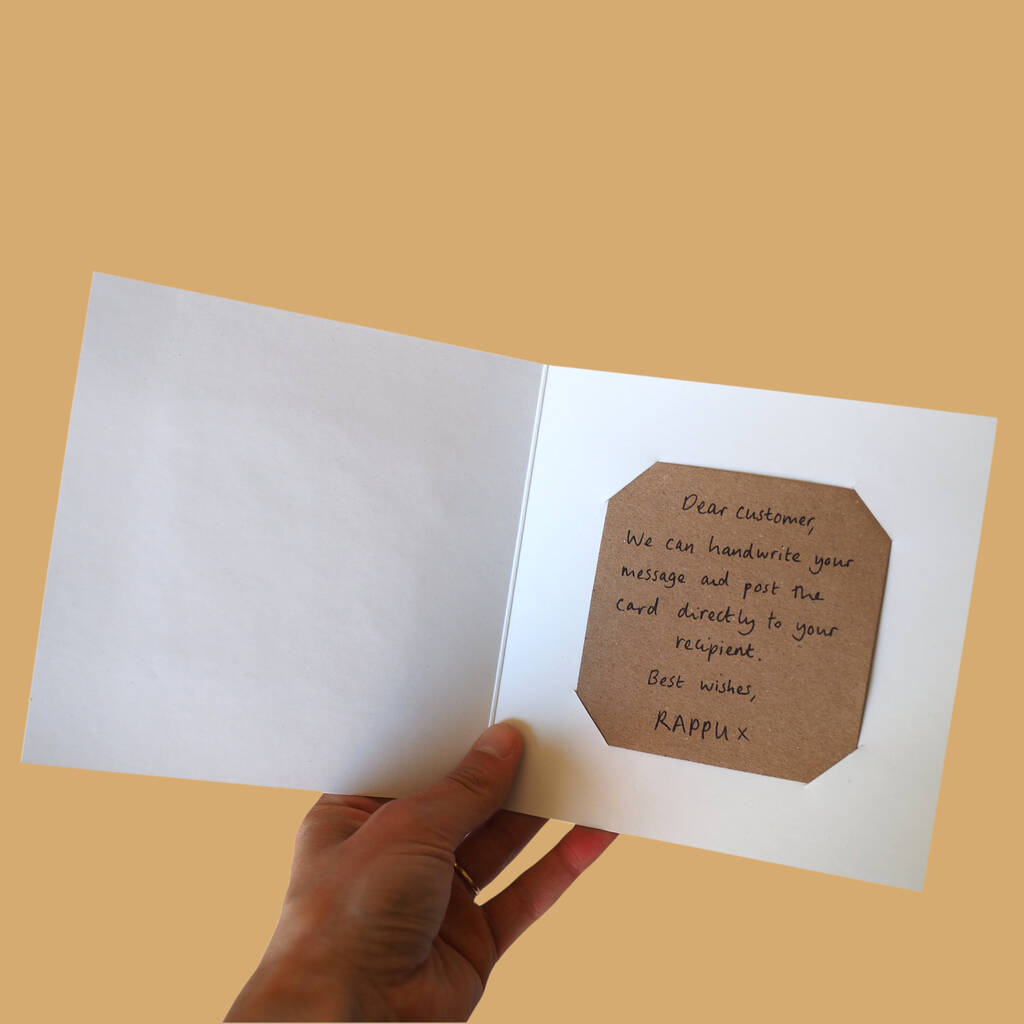 Dear customer,
We can handwrite your
message and post the
card directly to your
recipient.
Best wishes,
RAPPU x